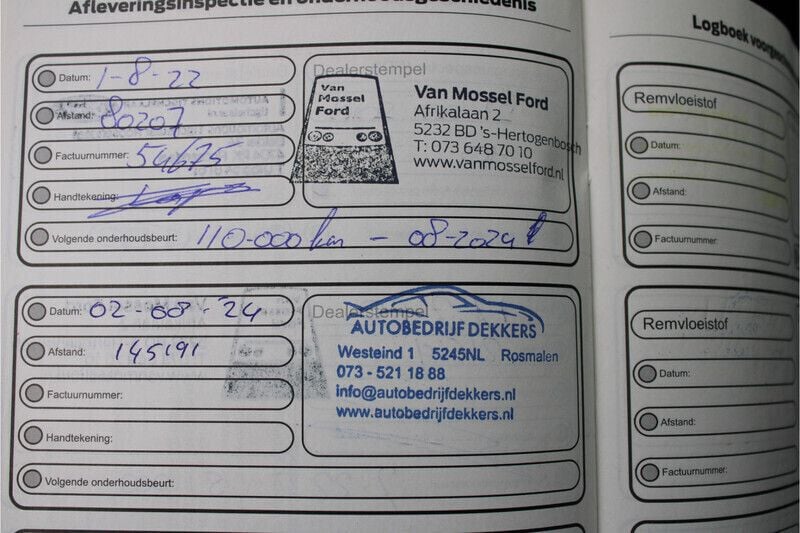 Afleveringsinspectie en onderhoudsgeschiedenis
Datum: 1-8-22
Afstand: 80207
Factuurnummer: 54675
Handtekening:
Volgende onderhoudsbeurt: 110-000 km - 08-2024
Dealerstempel
Van
Mossel
Ford
Van Mossel Ford
Afrikalaan 2
5232 BD 's-Hertogenbosch
T: 073 648 70 10
www.vanmosselford.nl
Datum: 02-08-24
Afstand: 145191
Factuurnummer:
Handtekening:
Volgende onderhoudsbeurt:
Dealerstempel
AUTOBEDRIJF DEKKERS
Westeind 1 5245NL Rosmalen
073 - 521 18 88
info@autobedrijfdekkers.nl
www.autobedrijfdekkers.nl
Logboek
Remvloeistof
Datum:
Afstand:
Factuurnummer:
Remvloeistof
Datum:
Afstand:
Factuurnummer: